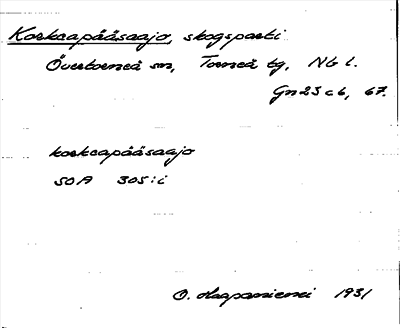 Korkeapääsaajo, skogsparti
Övertorneå sn, Torneå tg, Nb l.
Gn 23 c 6, 67.
korkeapääsaajo
SOA 305:i
O. Haapaniemi 1931